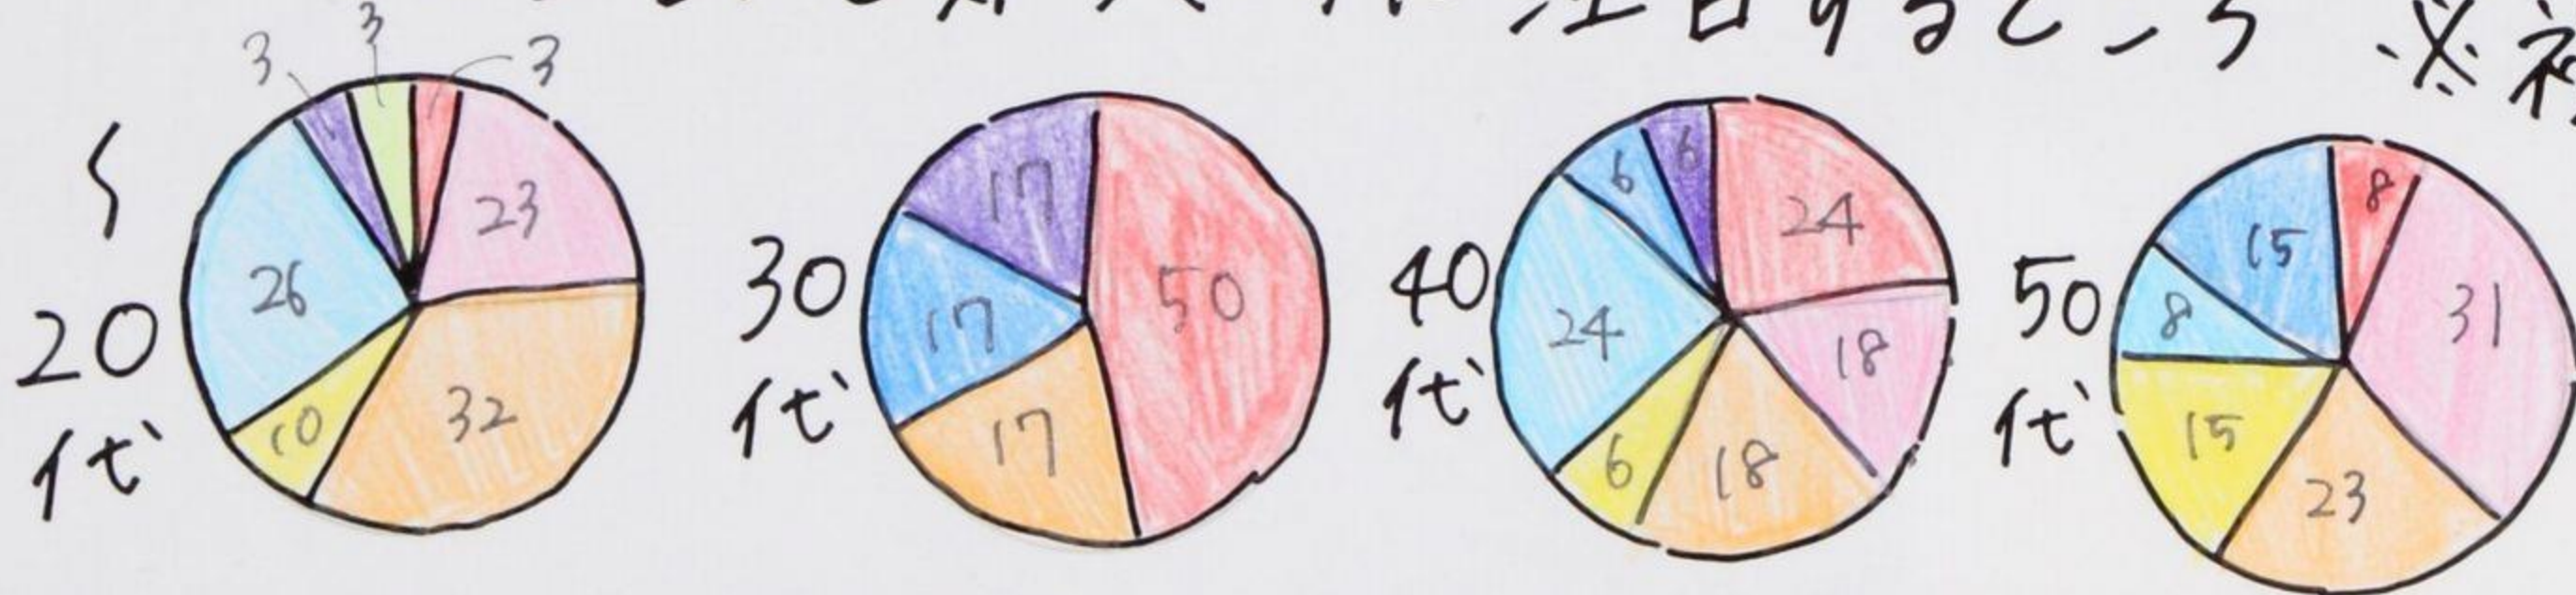 注目するところ ※
3 3 3
23 32 10 26
～20代
50 17 17 17
30代
24 18 18 6 24 6 6
40代
8 31 23 15 8 15
50代